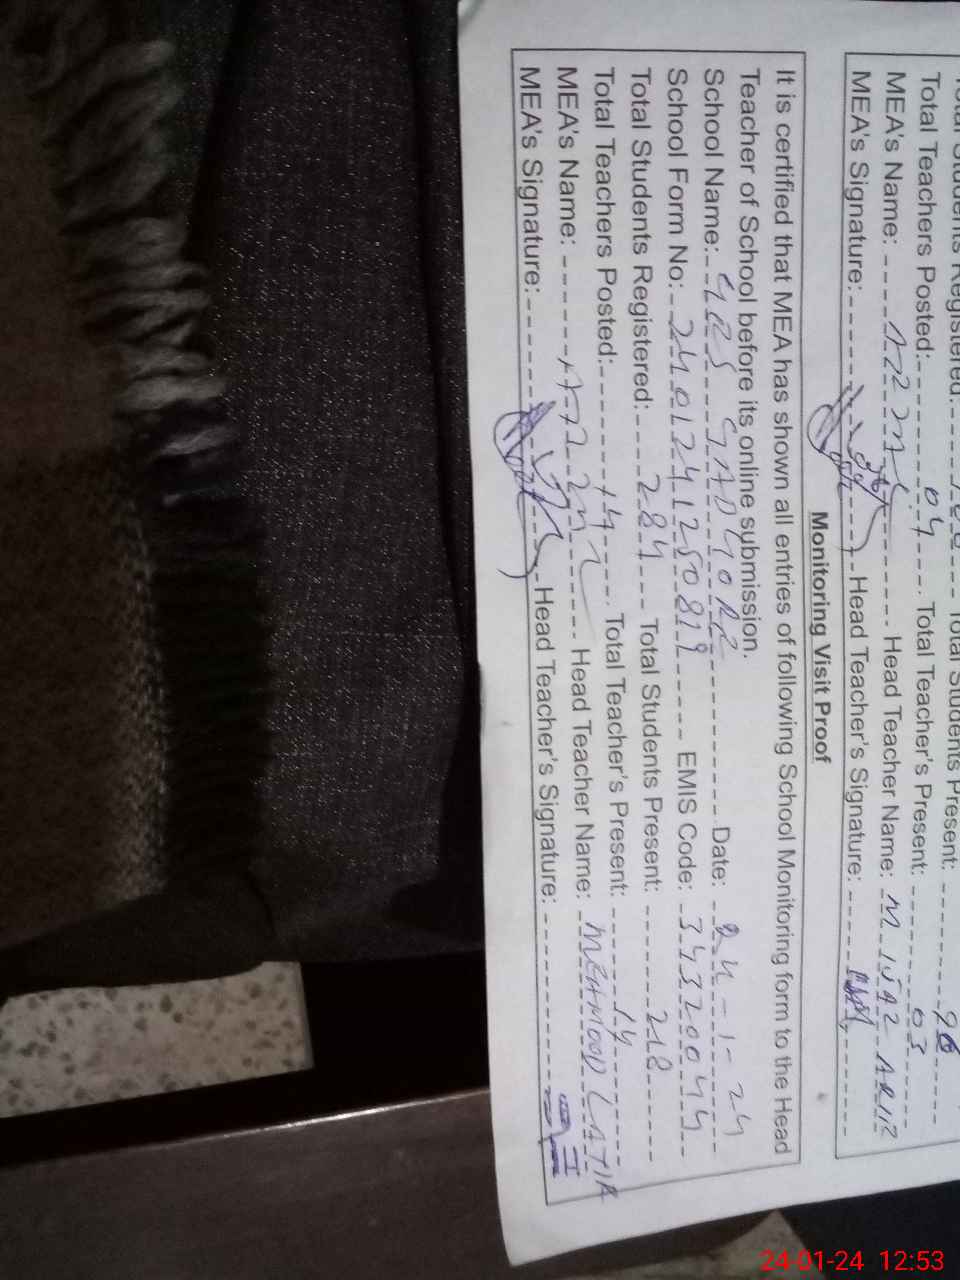 Total Students Registered: Total Students Present:
Total Teachers Posted: 04 Total Teacher's Present: 03
MEA's Name: Head Teacher Name: M.
MEA's Signature: Head Teacher's Signature:
Monitoring Visit Proof
It is certified that MEA has shown all entries of following School Monitoring form to the Head
Teacher of School before its online submission.
School Name: Date: 24-1-24
School Form No: EMIS Code: 34320044
Total Students Registered: 284 Total Students Present: 218
Total Teachers Posted: 14 Total Teacher's Present: 14
MEA's Name: Head Teacher Name: MEHMOOD
MEA's Signature: Head Teacher's Signature:
24-01-24 12:53